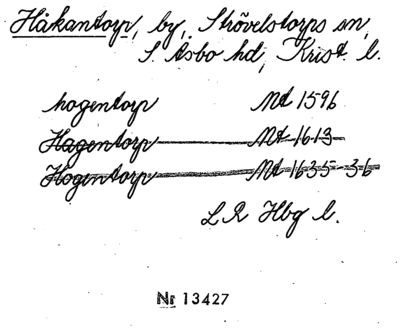 Håkantorp, by, Strövelstorps sn,
S. Åsbo hd, Krist. l.
hogentorp Mt 1596
Hagentorp Mt 1613
Hogentorp Mt 1635-36
L R Hbg l.
Nr 13427